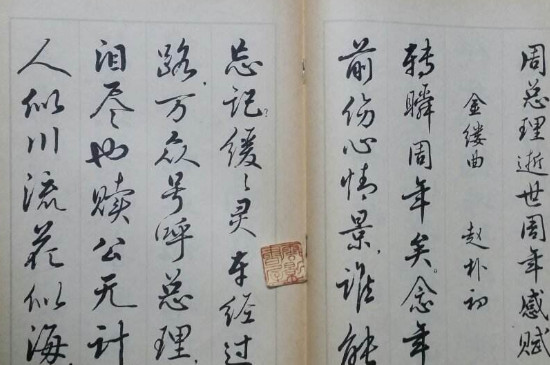 周总理逝世周年感赋
金缕曲 赵朴初
转瞬周年矣。念年
前伤心情景,谁能
忘记?缓缓灵车经过
路,万众号呼总理。
泪尽也赎公无计
人似川流花似海,